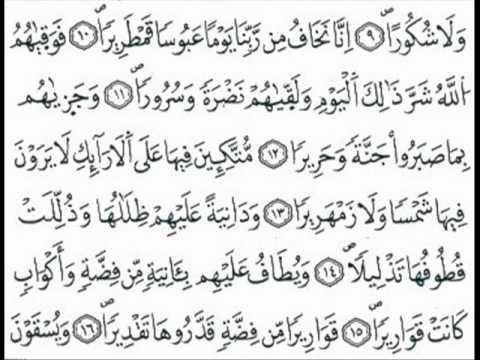 وَلَا شُكُورًا ۝٩ إِنَّا نَخَافُ مِن رَّبِّنَا يَوْمًا عَبُوسًا قَمْطَرِيرًا ۝١٠ فَوَقَىٰهُمُ
ٱللَّهُ شَرَّ ذَٰلِكَ ٱلْيَوْمِ وَلَقَّىٰهُمْ نَضْرَةً وَسُرُورًا ۝١١ وَجَزَىٰهُم
بِمَا صَبَرُوا۟ جَنَّةً وَحَرِيرًا ۝١٢ مُّتَّكِـِٔينَ فِيهَا عَلَى ٱلْأَرَآئِكِ لَا يَرَوْنَ
فِيهَا شَمْسًا وَلَا زَمْهَرِيرًا ۝١٣ وَدَانِيَةً عَلَيْهِمْ ظِلَـٰلُهَا وَذُلِّلَتْ
قُطُوفُهَا تَذْلِيلًا ۝١٤ وَيُطَافُ عَلَيْهِم بِـَٔانِيَةٍ مِّن فِضَّةٍ وَأَكْوَابٍ
كَانَتْ قَوَارِيرَا۠ ۝١٥ قَوَارِيرَا۟ مِن فِضَّةٍ قَدَّرُوهَا تَقْدِيرًا ۝١٦ وَيُسْقَوْنَ